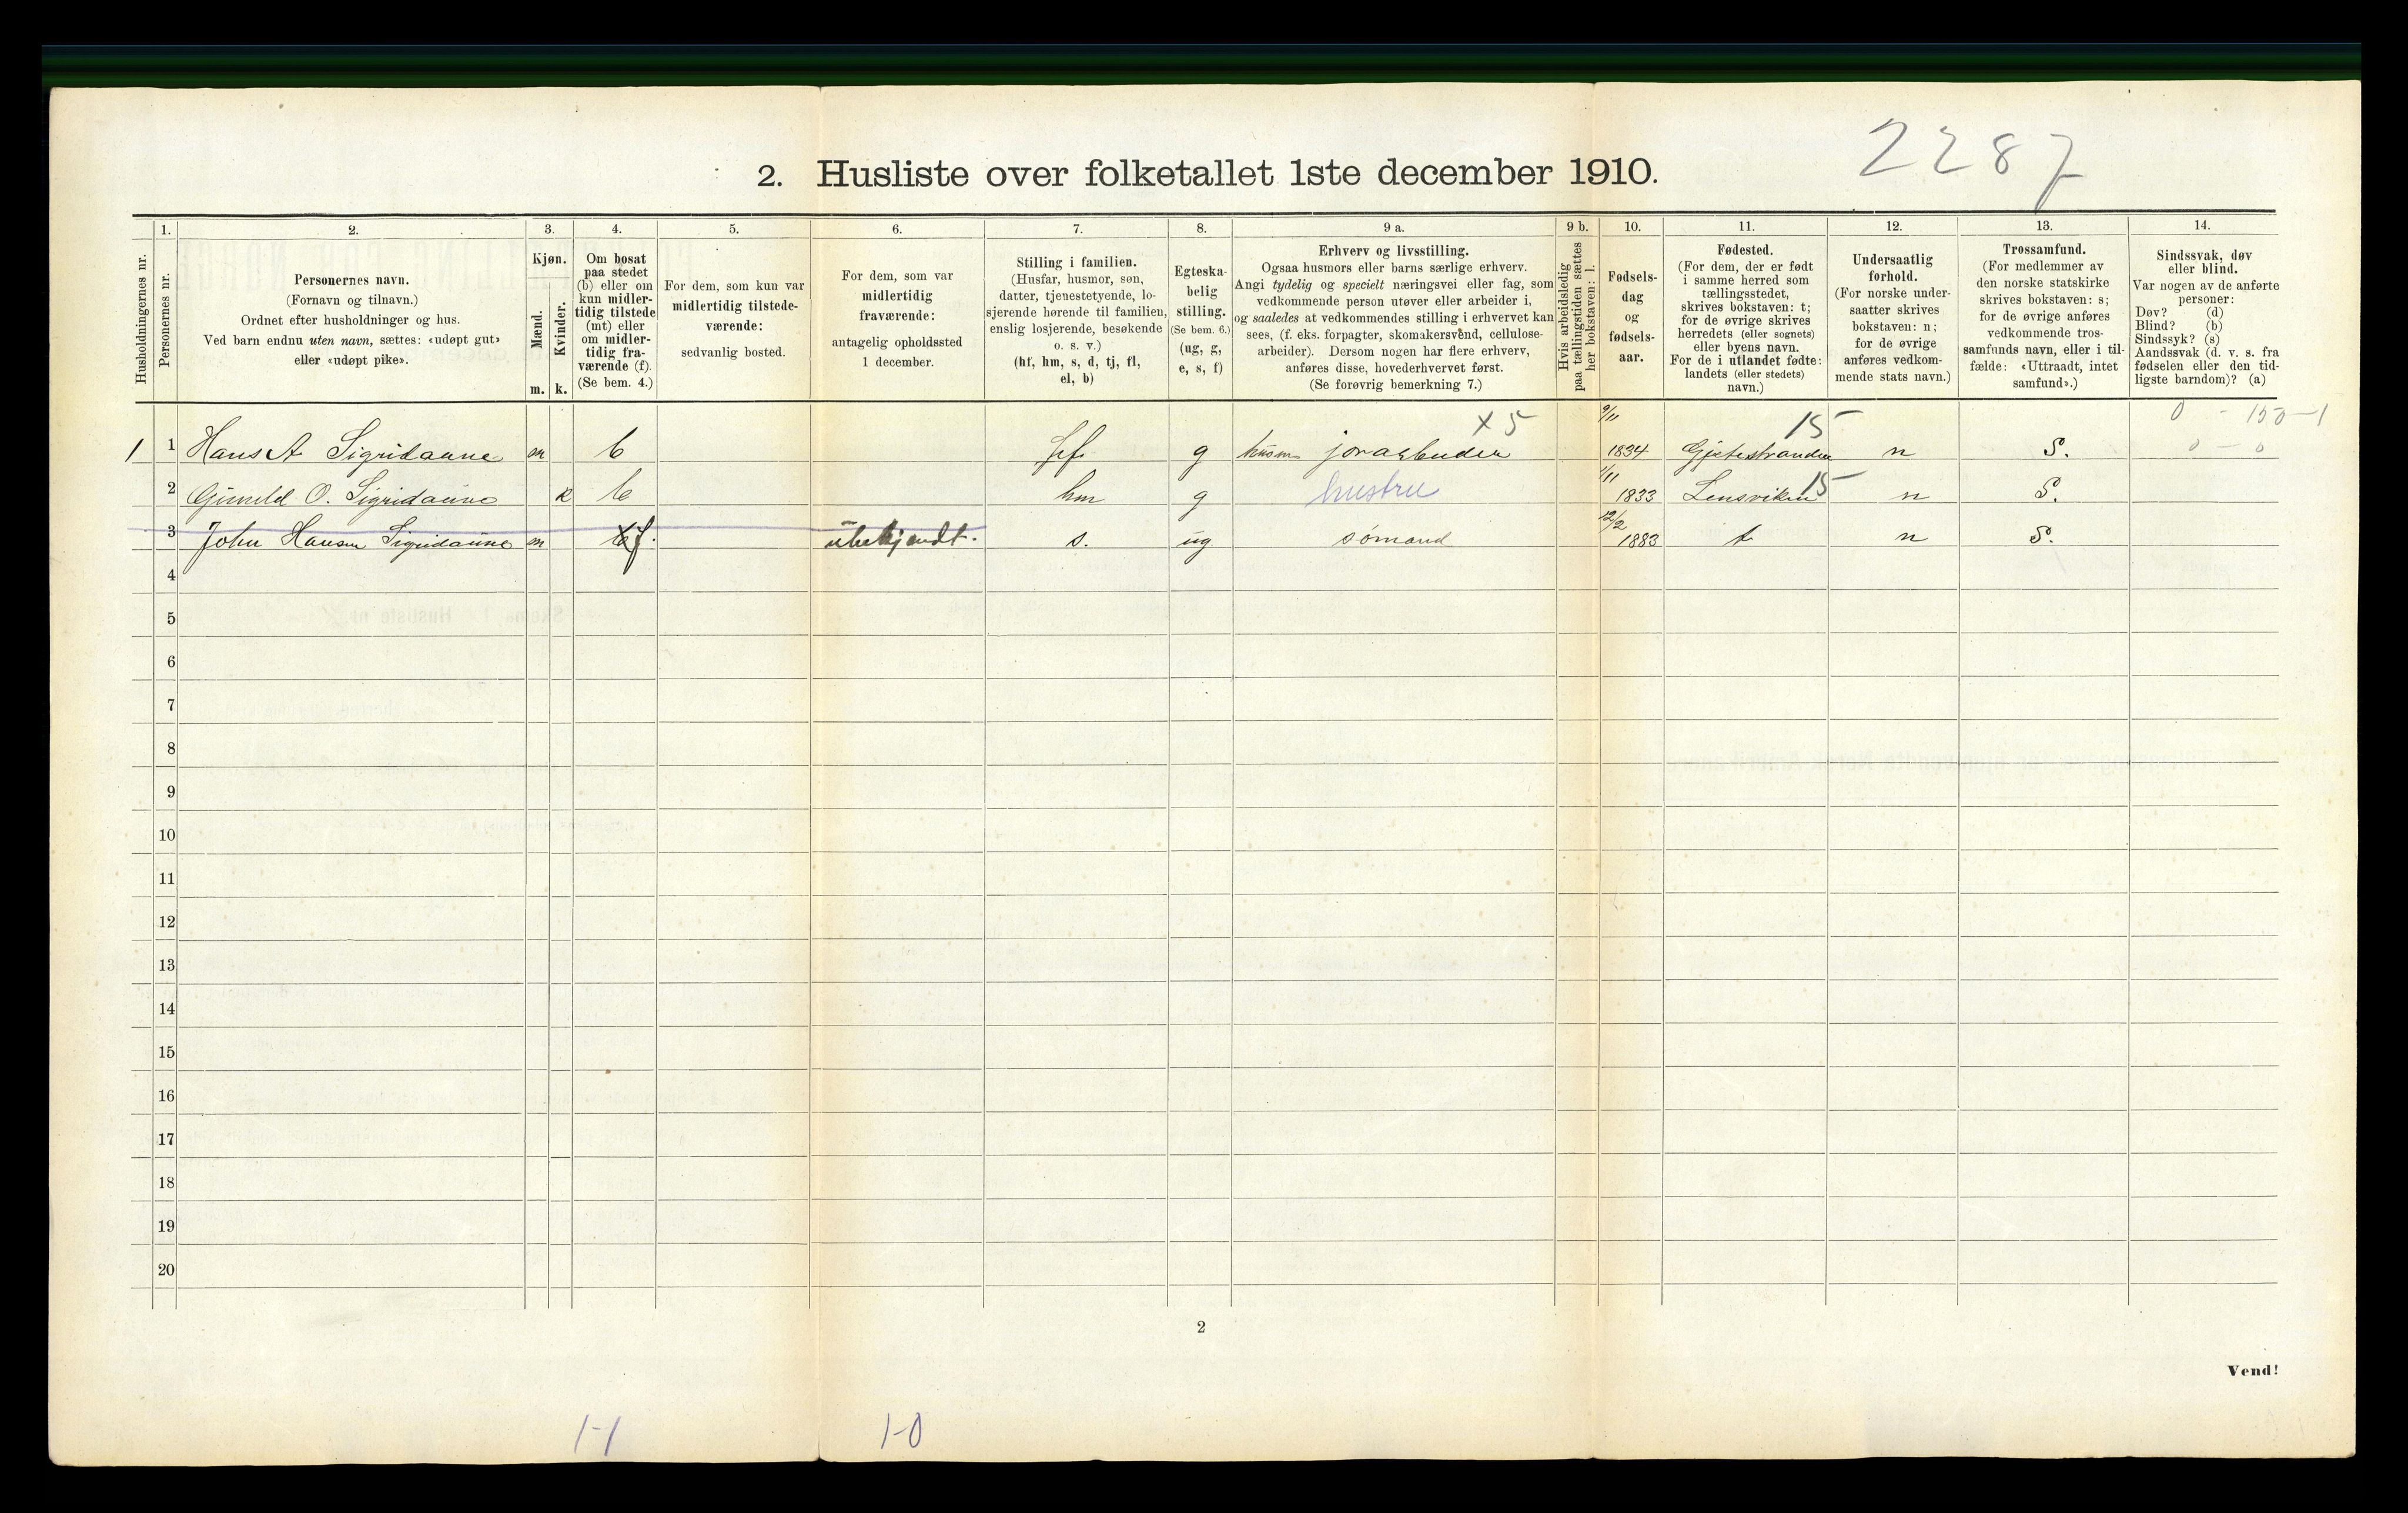 2287
2. Husliste over folketallet 1ste december 1910.
Husholdningernes nr.
1.
Personernes nr.
2.
Personernes navn.
(Fornavn og tilnavn.)
Ordnet efter husholdninger og hus.
Ved barn endnu uten navn, sættes: «udøpt gut»
eller «udøpt pike».
3.
Kjøn.
Mænd.
m.
Kvinder.
k.
4.
Om bosat
paa stedet
(b) eller om
kun midler-
tidig tilstede
(mt) eller
om midler-
tidig fra-
værende (f).
(Se bem. 4.)
5.
For dem, som kun var
midlertidig tilstede-
værende:
sedvanlig bosted.
6.
For dem, som var
midlertidig
fraværende:
antagelig opholdssted
1 december.
7.
Stilling i familien.
(Husfar, husmor, søn,
datter, tjenestetyende, lo-
sjerende hørende til familien,
enslig losjerende, besøkende
o. s. v.)
(hf, hm, s, d, tj, fl,
el, b)
8.
Egteska-
belig
stilling.
(Se bem. 6.)
(ug, g,
e, s, f)
9 a.
Erhverv og livsstilling.
Ogsaa husmors eller barns særlige erhverv.
Angi tydelig og specielt næringsvei eller fag, som
vedkommende person utøver eller arbeider i,
og saaledes at vedkommendes stilling i erhvervet kan
sees, (f. eks. forpagter, skomakersvend, cellulose-
arbeider). Dersom nogen har flere erhverv,
anføres disse, hovederhvervet først.
(Se forøvrig bemerkning 7.)
9 b.
Hvis arbeidsledig
paa tællingstiden sættes
her bokstaven: l.
10.
Fødsels-
dag
og
fødsels-
aar.
11.
Fødested.
(For dem, der er født
i samme herred som
tællingsstedet,
skrives bokstaven: t;
for de øvrige skrives
herredets (eller sognets)
eller byens navn.
For de i utlandet fødte:
landets (eller stedets)
navn.)
12.
Undersaatlig
forhold.
(For norske under-
saatter skrives
bokstaven: n;
for de øvrige
anføres vedkom-
mende stats navn.)
13.
Trossamfund.
(For medlemmer av
den norske statskirke
skrives bokstaven: s;
for de øvrige anføres
vedkommende tros-
samfunds navn, eller i til-
fælde: «Uttraadt, intet
samfund».)
14.
Sindssvak, døv
eller blind.
Var nogen av de anførte
personer:
Døv? (d)
Blind? (b)
Sindssyk? (s)
Aandssvak (d. v. s. fra
fødselen eller den tid-
ligste barndom)? (a)
x 5 9/11 15 0 - 150-1
1 1 Hans A Sigridaune m b hf. g husm jorarbeider 1834 Gjeitestranden n S. 0 - 0
2 Gunild O. Sigridaune k b hm g hustru 1/11 1833 Lensviken 15 n S.
3 John Hansen Sigridaune m f. ubekjendt. s. ug sømand 12/2 1883 t n S.
4
5
6
7
8
9
10
11
12
13
14
15
16
17
18
19
20
2
Vend!
1-1 1-0